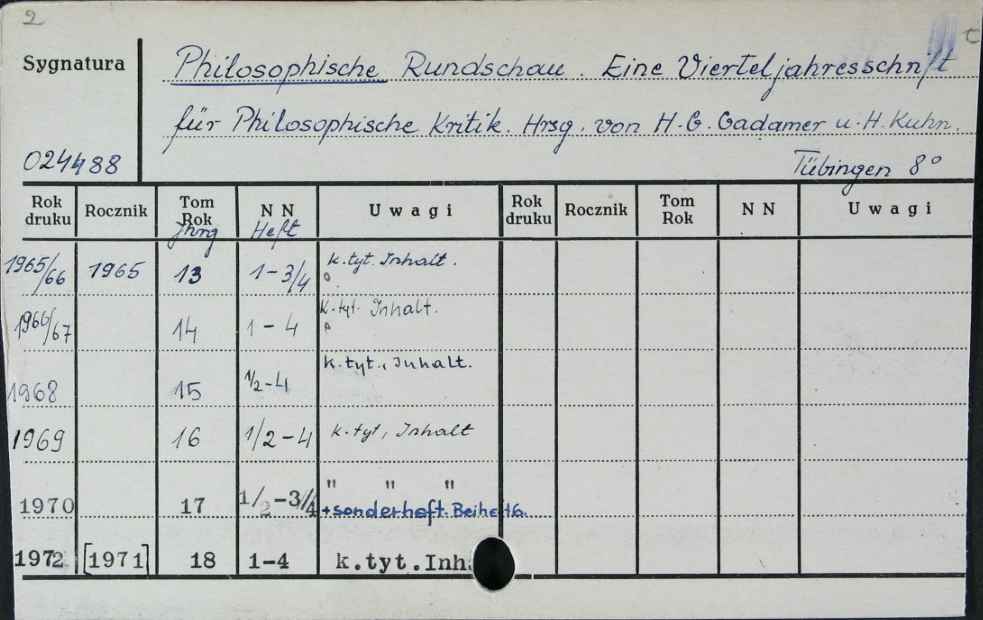 2
Sygnatura
Philosophische Rundschau. Eine Vierteljahresschrift
für Philosophische Kritik. Hrsg. von H.-G. Gadamer u. H. Kuhn.
024488
Tübingen 8°
Rok druku Rocznik Tom Rok NN Uwagi Rok druku Rocznik Tom Rok NN Uwagi
Jhrg Heft
1965/66 1965 13 1-3/4 k.tyt. Inhalt.
1966/67 14 1-4 k.tyt. Inhalt.
1968 15 1/2-4 k.tyt., Inhalt.
1969 16 1/2-4 k.tyt, Inhalt
1970 17 1/2-3/4 " " "
+sonderheft. Beiheft 6.
1972 [1971] 18 1-4 k.tyt.Inh.